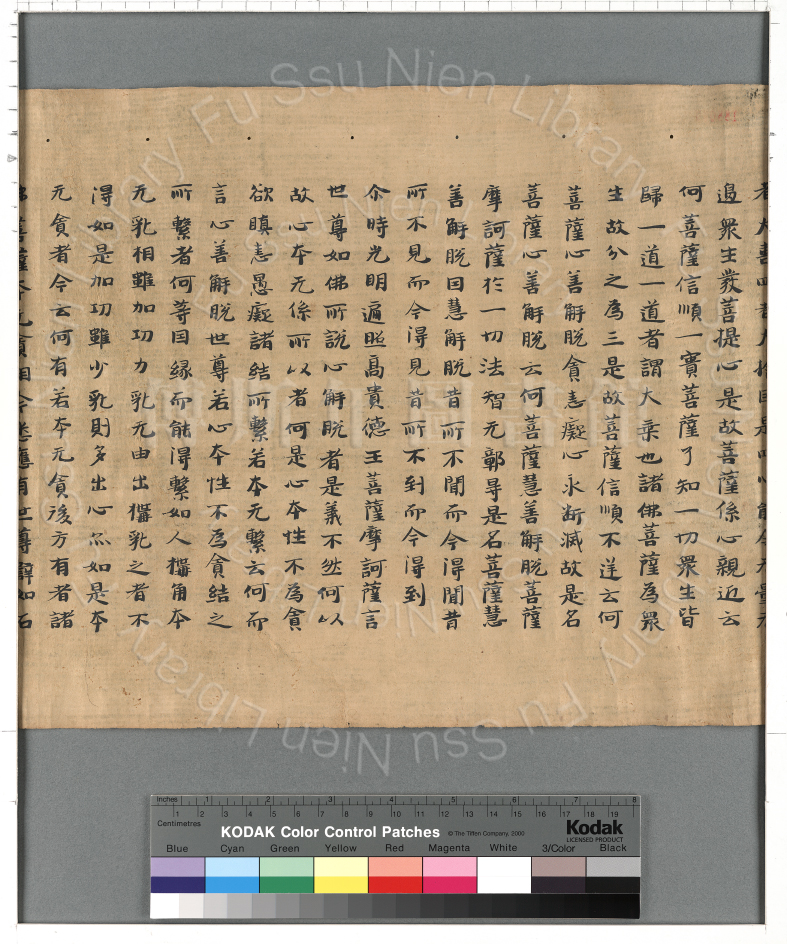 者大喜四者大捨因是四心能令无量无
邊衆生發菩提心是故菩薩係心親近云
何菩薩信順一實菩薩了知一切衆生皆
歸一道一道者謂大乘也諸佛菩薩為衆
生故分之為三是故菩薩信順不逆云何
菩薩心善解脫貪恚癡心永斷滅故是名
菩薩心善解脫云何菩薩慧善解脫菩薩
摩訶薩於一切法智无鄣㝵是名菩薩慧
善解脫因慧解脫昔所不聞而今得聞昔
所不見而今得見昔所不到而今得到
尒時光明遍照高貴德王菩薩摩訶薩言
世尊如佛所說心解脫者是義不然何以
故心本无係所以者何是心本性不為貪
欲瞋恚愚癡諸結所繫若本无繫云何而
言心善解脫世尊若心本性不為貪結之
所繫者何等因緣而能得繫如人角本
无乳相雖加功力乳无由出乳之者不
得如是加功雖少乳則多出心亦如是本
无貪者今云何有若本无貪後方有者諸
佛菩薩本无貪相今悉應有世尊譬如石
Fu Ssu Nien Library
傅斯年圖書館
Inches 1 2 3 4 5 6 7 8
Centimetres 1 2 3 4 5 6 7 8 9 10 11 12 13 14 15 16 17 18 19
KODAK Color Control Patches © The Tiffen Company, 2000 Kodak
LICENSED PRODUCT
Blue Cyan Green Yellow Red Magenta White 3/Color Black